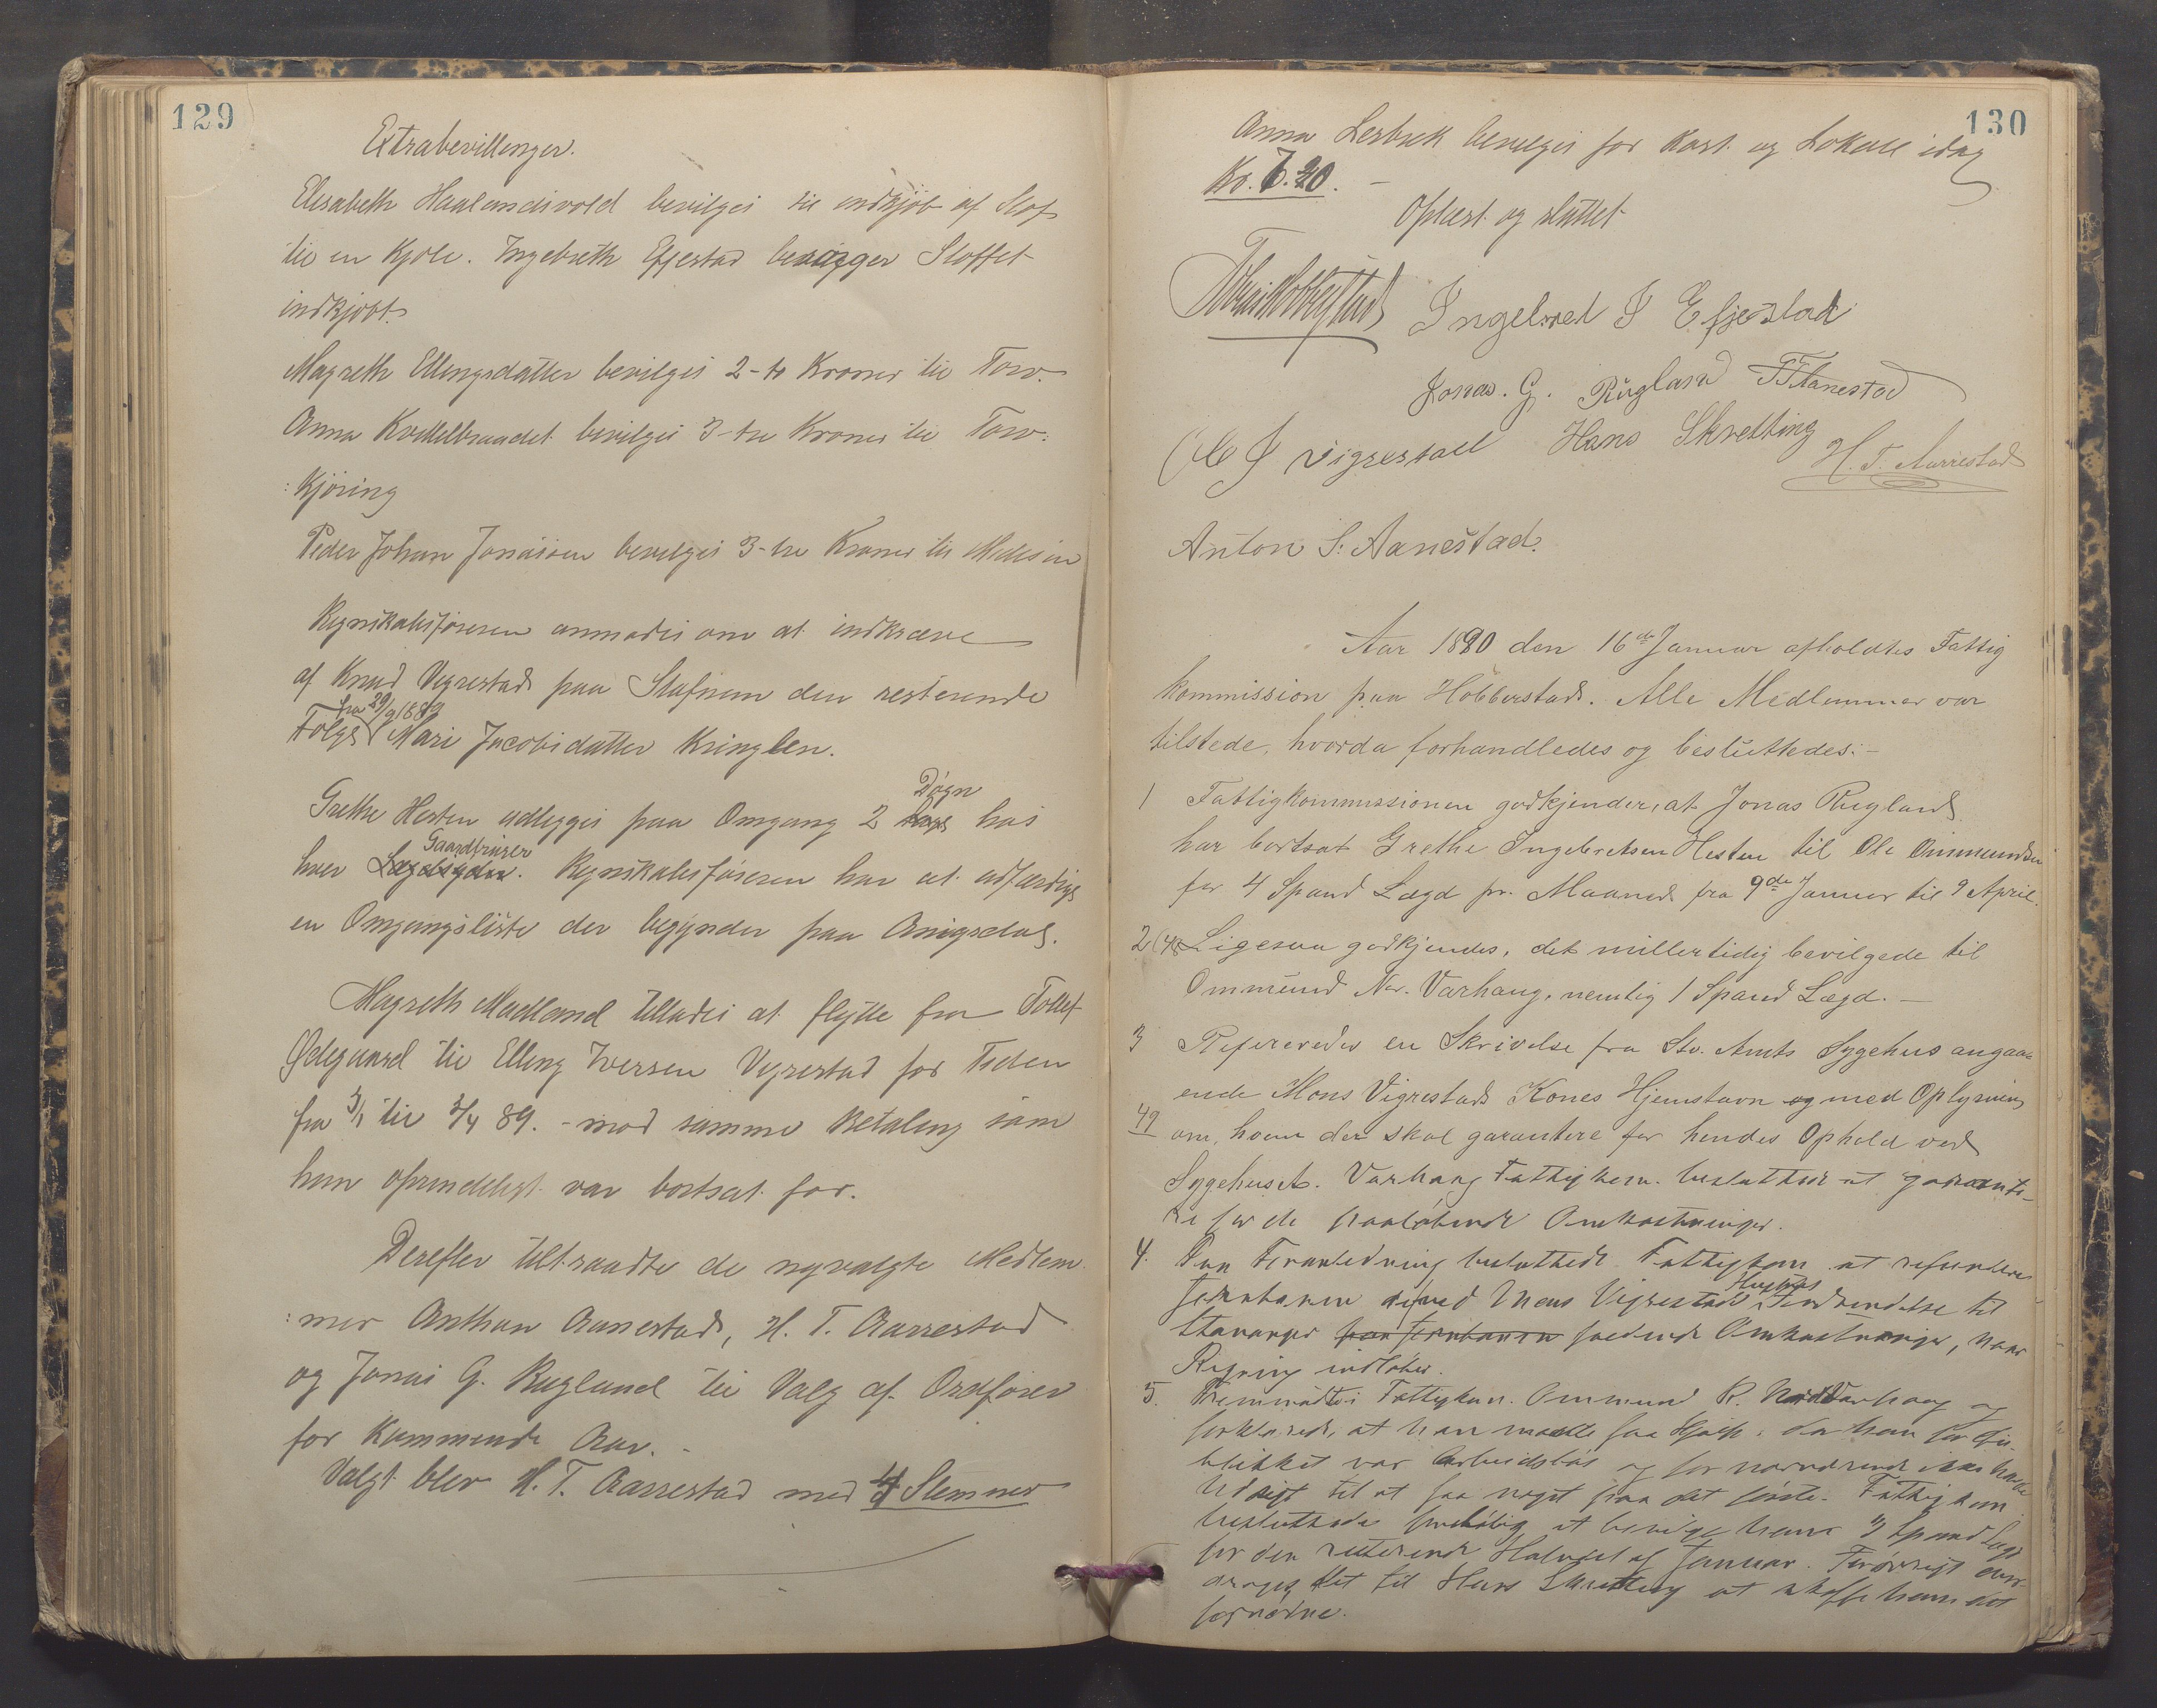 129
Extrabevillenger.
Elisabeth Haalandsvold bevilges til indkjøb af Stof
til en Kjole. Ingebreth Efjestad besørger Stoffet
indkjøbt.
Magreth Ellingsdatter bevilges 2-to Kroner til Torv.
Anna Kvellbrandet bevilges 3-tre Kroner til Torv:
:kjøring
Peder Johan Jonassen bevilges 3-tre Kroner til Medisin
Regnskabsføreren anmodes om at indkræve
af Knud Vigrestad paa Stafnum den resterende
fra 29/9 1883
Følge Mari Jacobsdatter Kringlen.
Døgn
Grethe Hesten udlegges paa Omgang 2 Dage hos
Gaardbruger
hver Lægdsyder. Regnskabsføreren har at udfærdige
en Omgangsliste der begynder paa Anisdal.
Magreth Madland tillades at flytte fra Tollef
Ødegaard til Elling Iversen Vigrestad for Tiden
fra 3/1 til 3/4 89. - mod samme Betaling som
hun oprindeligt var bortsat for.
Derefter tiltraadte de nyvalgte Medlem
:mer Anthon Aanestad, H. T. Aarrestad
og Jonas G. Rugland til Valg af Ordfører
for Kommende Aar. -
Valgt blev H. T. Aarrestad med 4 Stemmer
130
Anna Lerbrek bevilges for Kost og Lokale idag
Kr. 7.20. -
Oplæst og sluttet
Ingebret I Efjestad
Jonas. G. Rugland T T Aanestad
O I Vigrestad Hans Skretting
H. T. Aarrestad
Anton S. Aanestad.
Aar 1890 den 16de Januar afholdtes Fattig
kommission paa Hobberstad. Alle Medlemmer var
tilstede, hvorda forhandledes og besluttedes:-
1 Fattigkommissionen godkjender, at Jonas Rugland
har bortsat Grethe Ingebretsen Hesten til Ole Ommundsen
for 4 Spand Lægd pr. Maaned fra 9de Januar til 9 April.
2 Ligesaa godkjendes, det midlertidig bevilgede til
Ommund Nr. Varhaug, nemlig 1 Spand Lægd. -
3 Refereredes en Skrivelse fra Stv. Amts Sygehus angaa-
ende Mons Vigrestads Kones Hjemstavn og med Oplysning
49
om, hvem der skal garantere for hendes Ophold ved
Sygehuset. Varhaug Fattigkom. besluttede at garante-
re for de paaløbende Omkostninger.
4. Paa Foranledning besluttede Fattigkom. at refundere
Hustrus
Jernbanen de ved Mons Vigrestads Indsendelse til
Stavanger paa Jernbanen foranledede Omkostninger, naar
Regning indløber.
5. Fremmødte i Fattigkom. Ommund R. Nordvarhaug og
forklarede, at han maatte faa Hjælp, da han for Øie-
blikket var arbeidsløs og for nærværende ikke havde
Udsigt til at faa noget paa det første. Fattigkom.
besluttede foreløbig at bevilge ham 3 Spand Lægd
for den resterende Halvdel af Januar. Forøvrigt over-
droges det til Hans Skretting at skaffe ham det
fornødne.